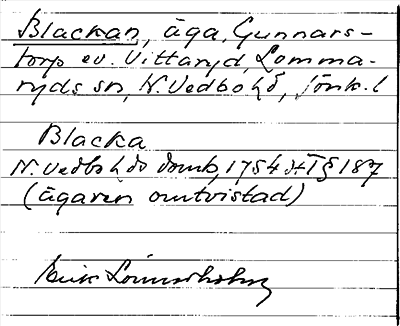 Blackan, äga, Gunnars-
torp ev. Vittaryd, Lomma-
ryds sn, N. Vedbo hd, Jönk. l
Blacka
N. Vedbo hds domb, 1754 HT § 187
(ägaren omtvistad)